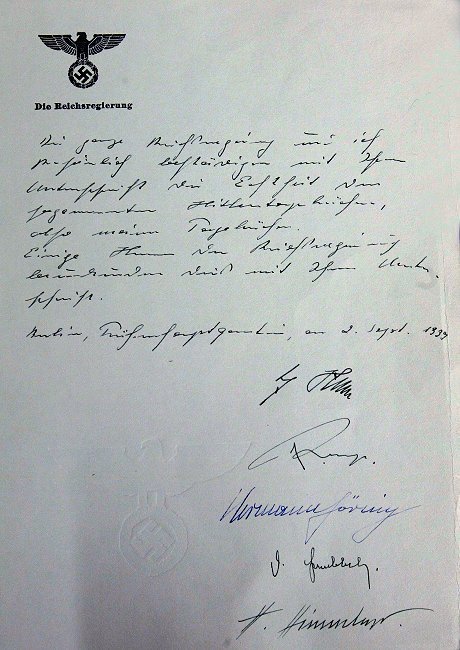 Die Reichsregierung
Die ganze Reichsregierung und ich
persönlich bestätigen mit Ihrer
Unterschrift die Echtheit der
sogenannten Hitlertagebücher,
also meiner Tagebücher.
Einige Herren der Reichsregierung
beurkunden dies mit Ihrer Unter-
schrift.
Berlin, Führerhauptquartier, am 2. Sept. 1939
Hermann Göring
H. Himmler